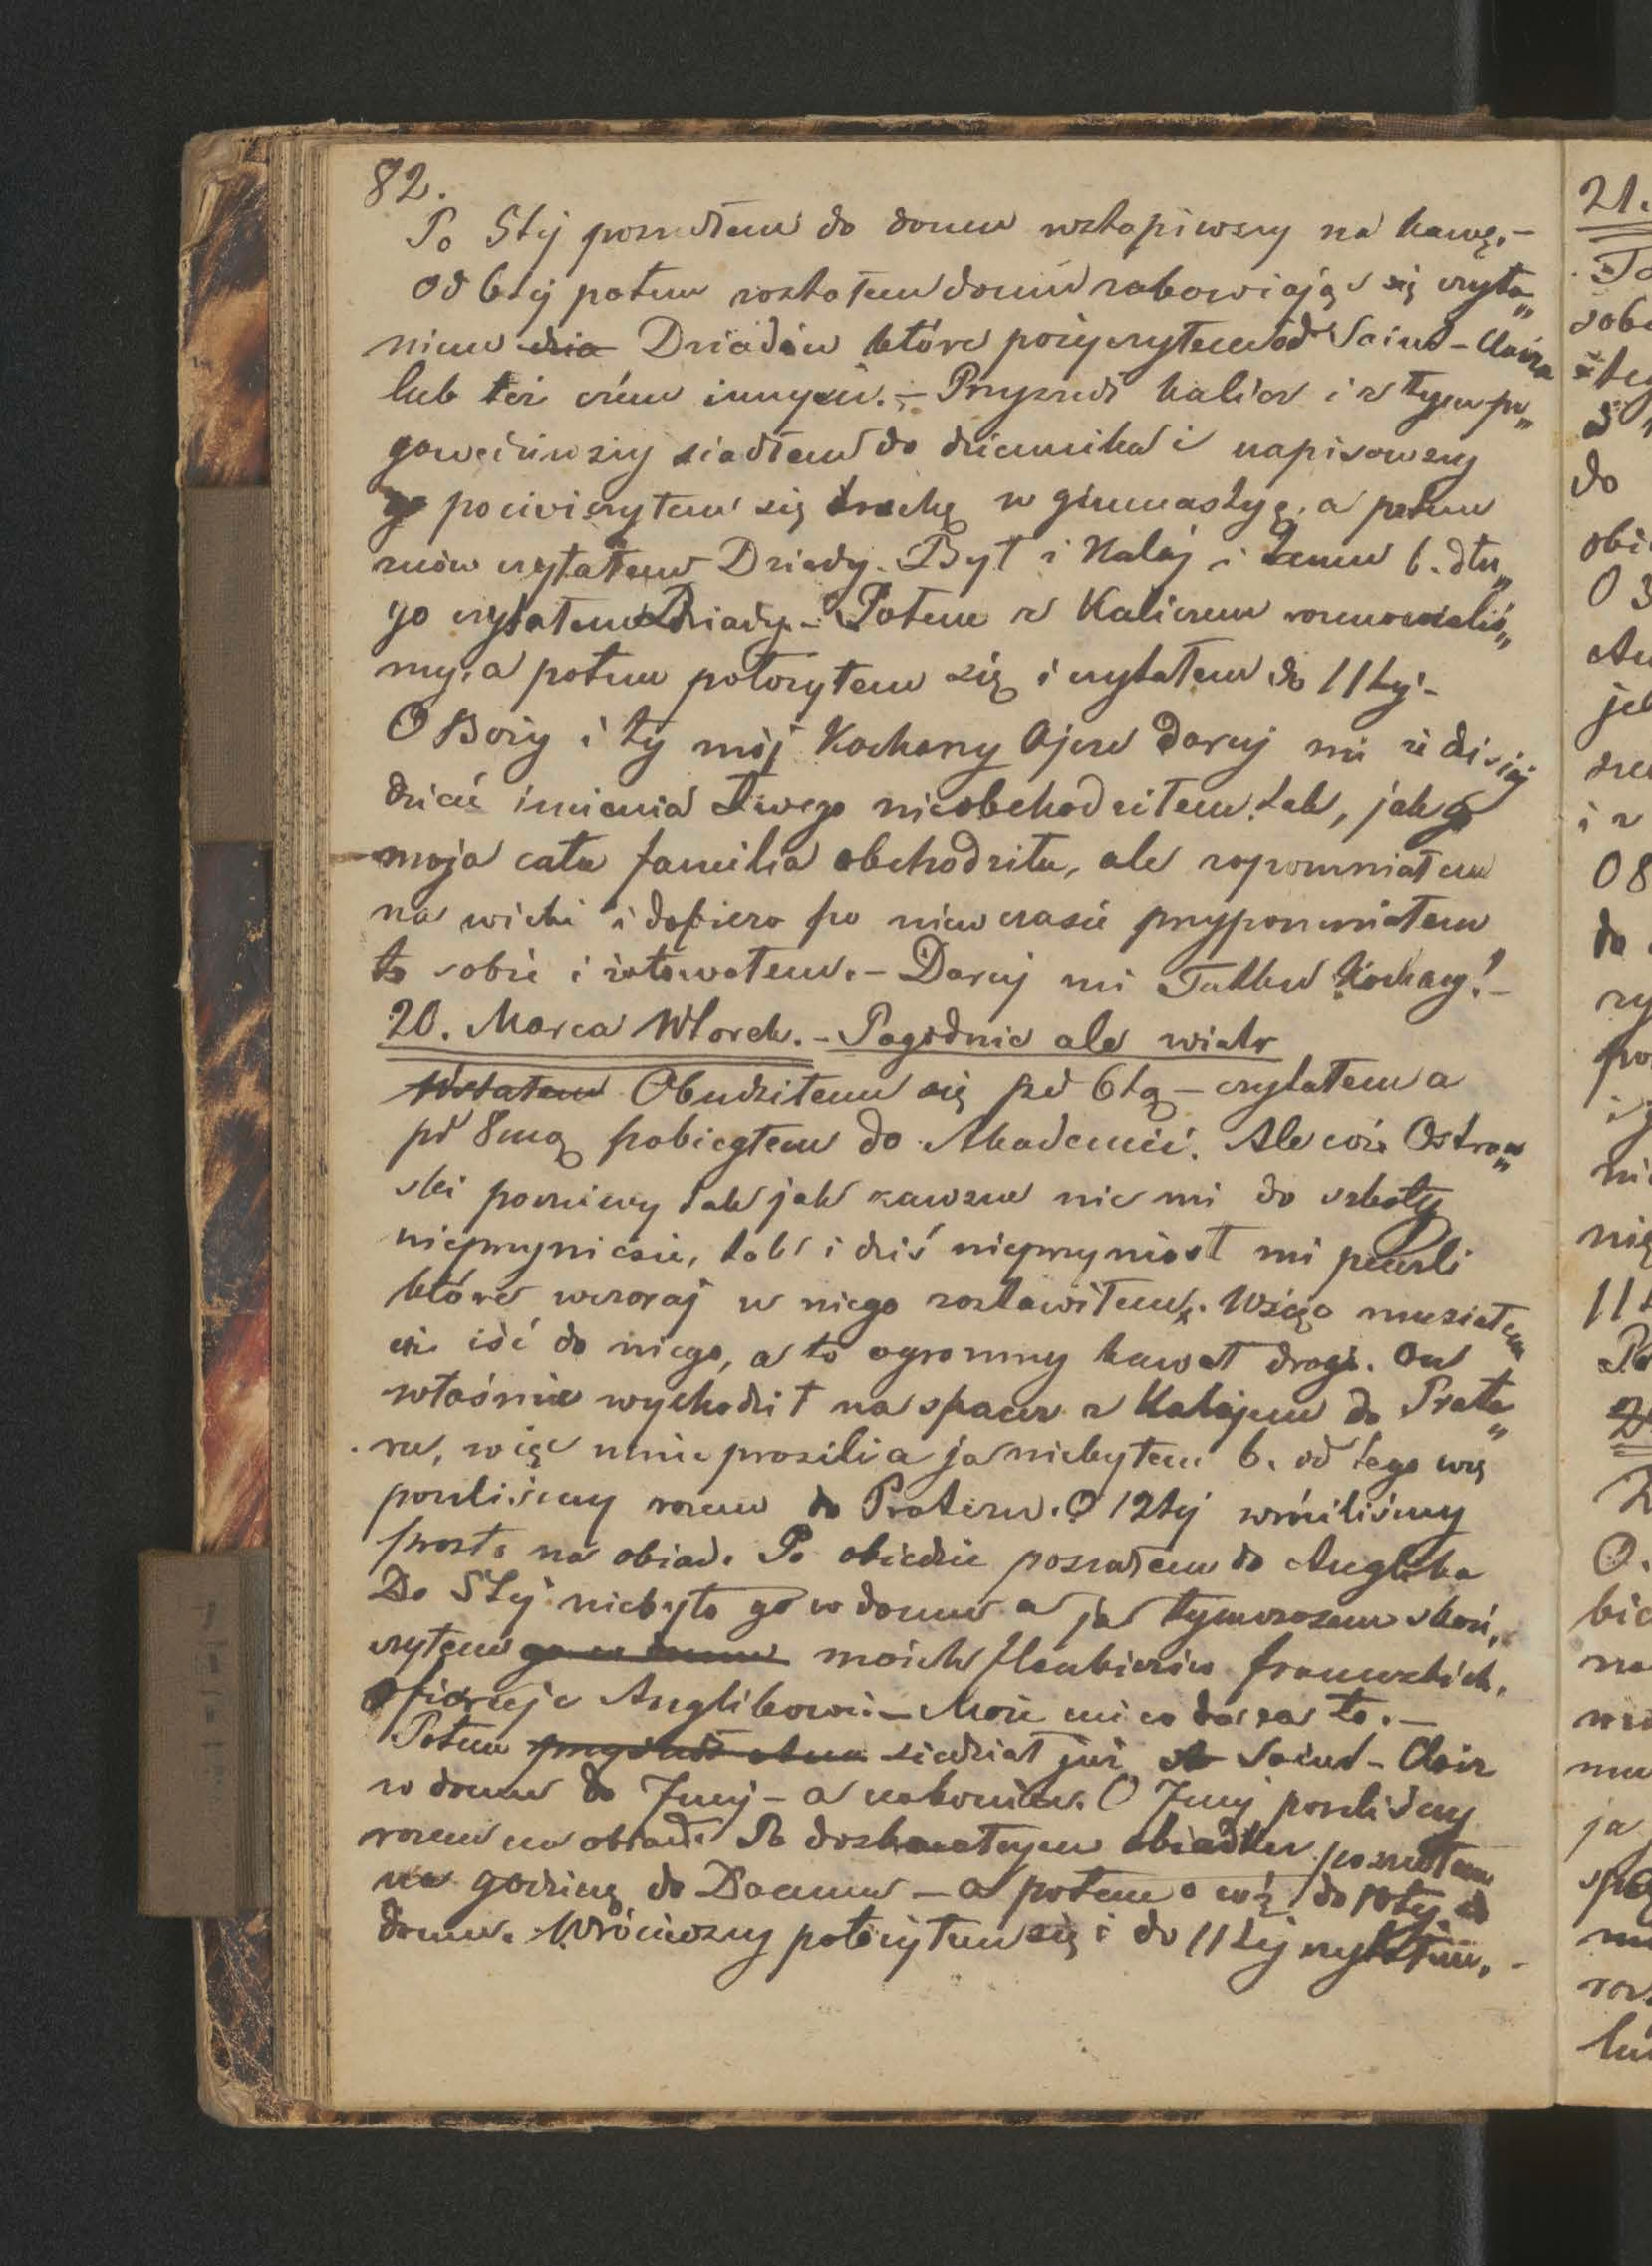 82.
Po 5tej poszedłem do domu wstąpiwszy na kawę.–
Od 6tej potem zostałem doma zabawiając się czyta„
niem dzia Dziadów które pożyczyłem od Saint-Claira
lub też czém innym.– Przyszedł Kalicz i z tym po„
gawędziwszy siadłem do dziennika i napisawszy
go pocwiczyłem się trochę w gimnastyce, a potem
znów czytałem Dziady. Był i Halaj i temu b. dłu„
go czytałem Dziady.– Potem z Kaliczem rozmawialiś„
my, a potem położyłem się i czytałem do 11tej.–
O Boży i ty mój Kochany Ojcze daruj mi że dzisiaj
dzień imienia Twego nieobchodziłem tak, jak go
moja cała familia obchodziła, ale zapomniałem
na wieki i dopiero po niewczasie przypomniałem
to sobie i żałowałem.– Daruj mi Tatku Kochany!–
20. Marca Wtorek.– Pogodnie ale wiatr
Wstałem Obudziłem się przed 6tą – czytałem a
pd 8mą pobiegłem do Akademii. Ale cóż Ostrow„
ski poczciwy tak jak zawsze nic mi do szkoły
nieprzyniesie, tak i dziś nieprzyniósł mi pensli
które wczoraj u niego zostawiłem. Więc musiałem
iść do niego, a to ogromny kawał drogi. On
właśnie wychodził na spacer z Halajem do Prate„
ru, więc mnie prosili a ja niebyłem b. od tego więc
poszliśmy razem do Prateru. O 12tej wróciliśmy
prosto na obiad. Po obiedzie poszedłem do Anglika
Do 5tej niebyło go w domu a ja tymczasem skoń„
czyłem go w domu moich Haubierów francuzkich.
Ofiaruję Anglikowi.– Może mi co da za to.–
Potem przyszedł siedział już Saint-Clair
w domu do 7mej – a nakoniec. O 7mej poszliśmy
razem na obiad. Po doskonałym obiadku poszedłem
na godzinę do Daumu – a potem do 10tej do
domu. Wróciwszy położyłem się i do 11tej czytałem.–
21.
do
O 3
i z
O 8
do
11t
O.
ja